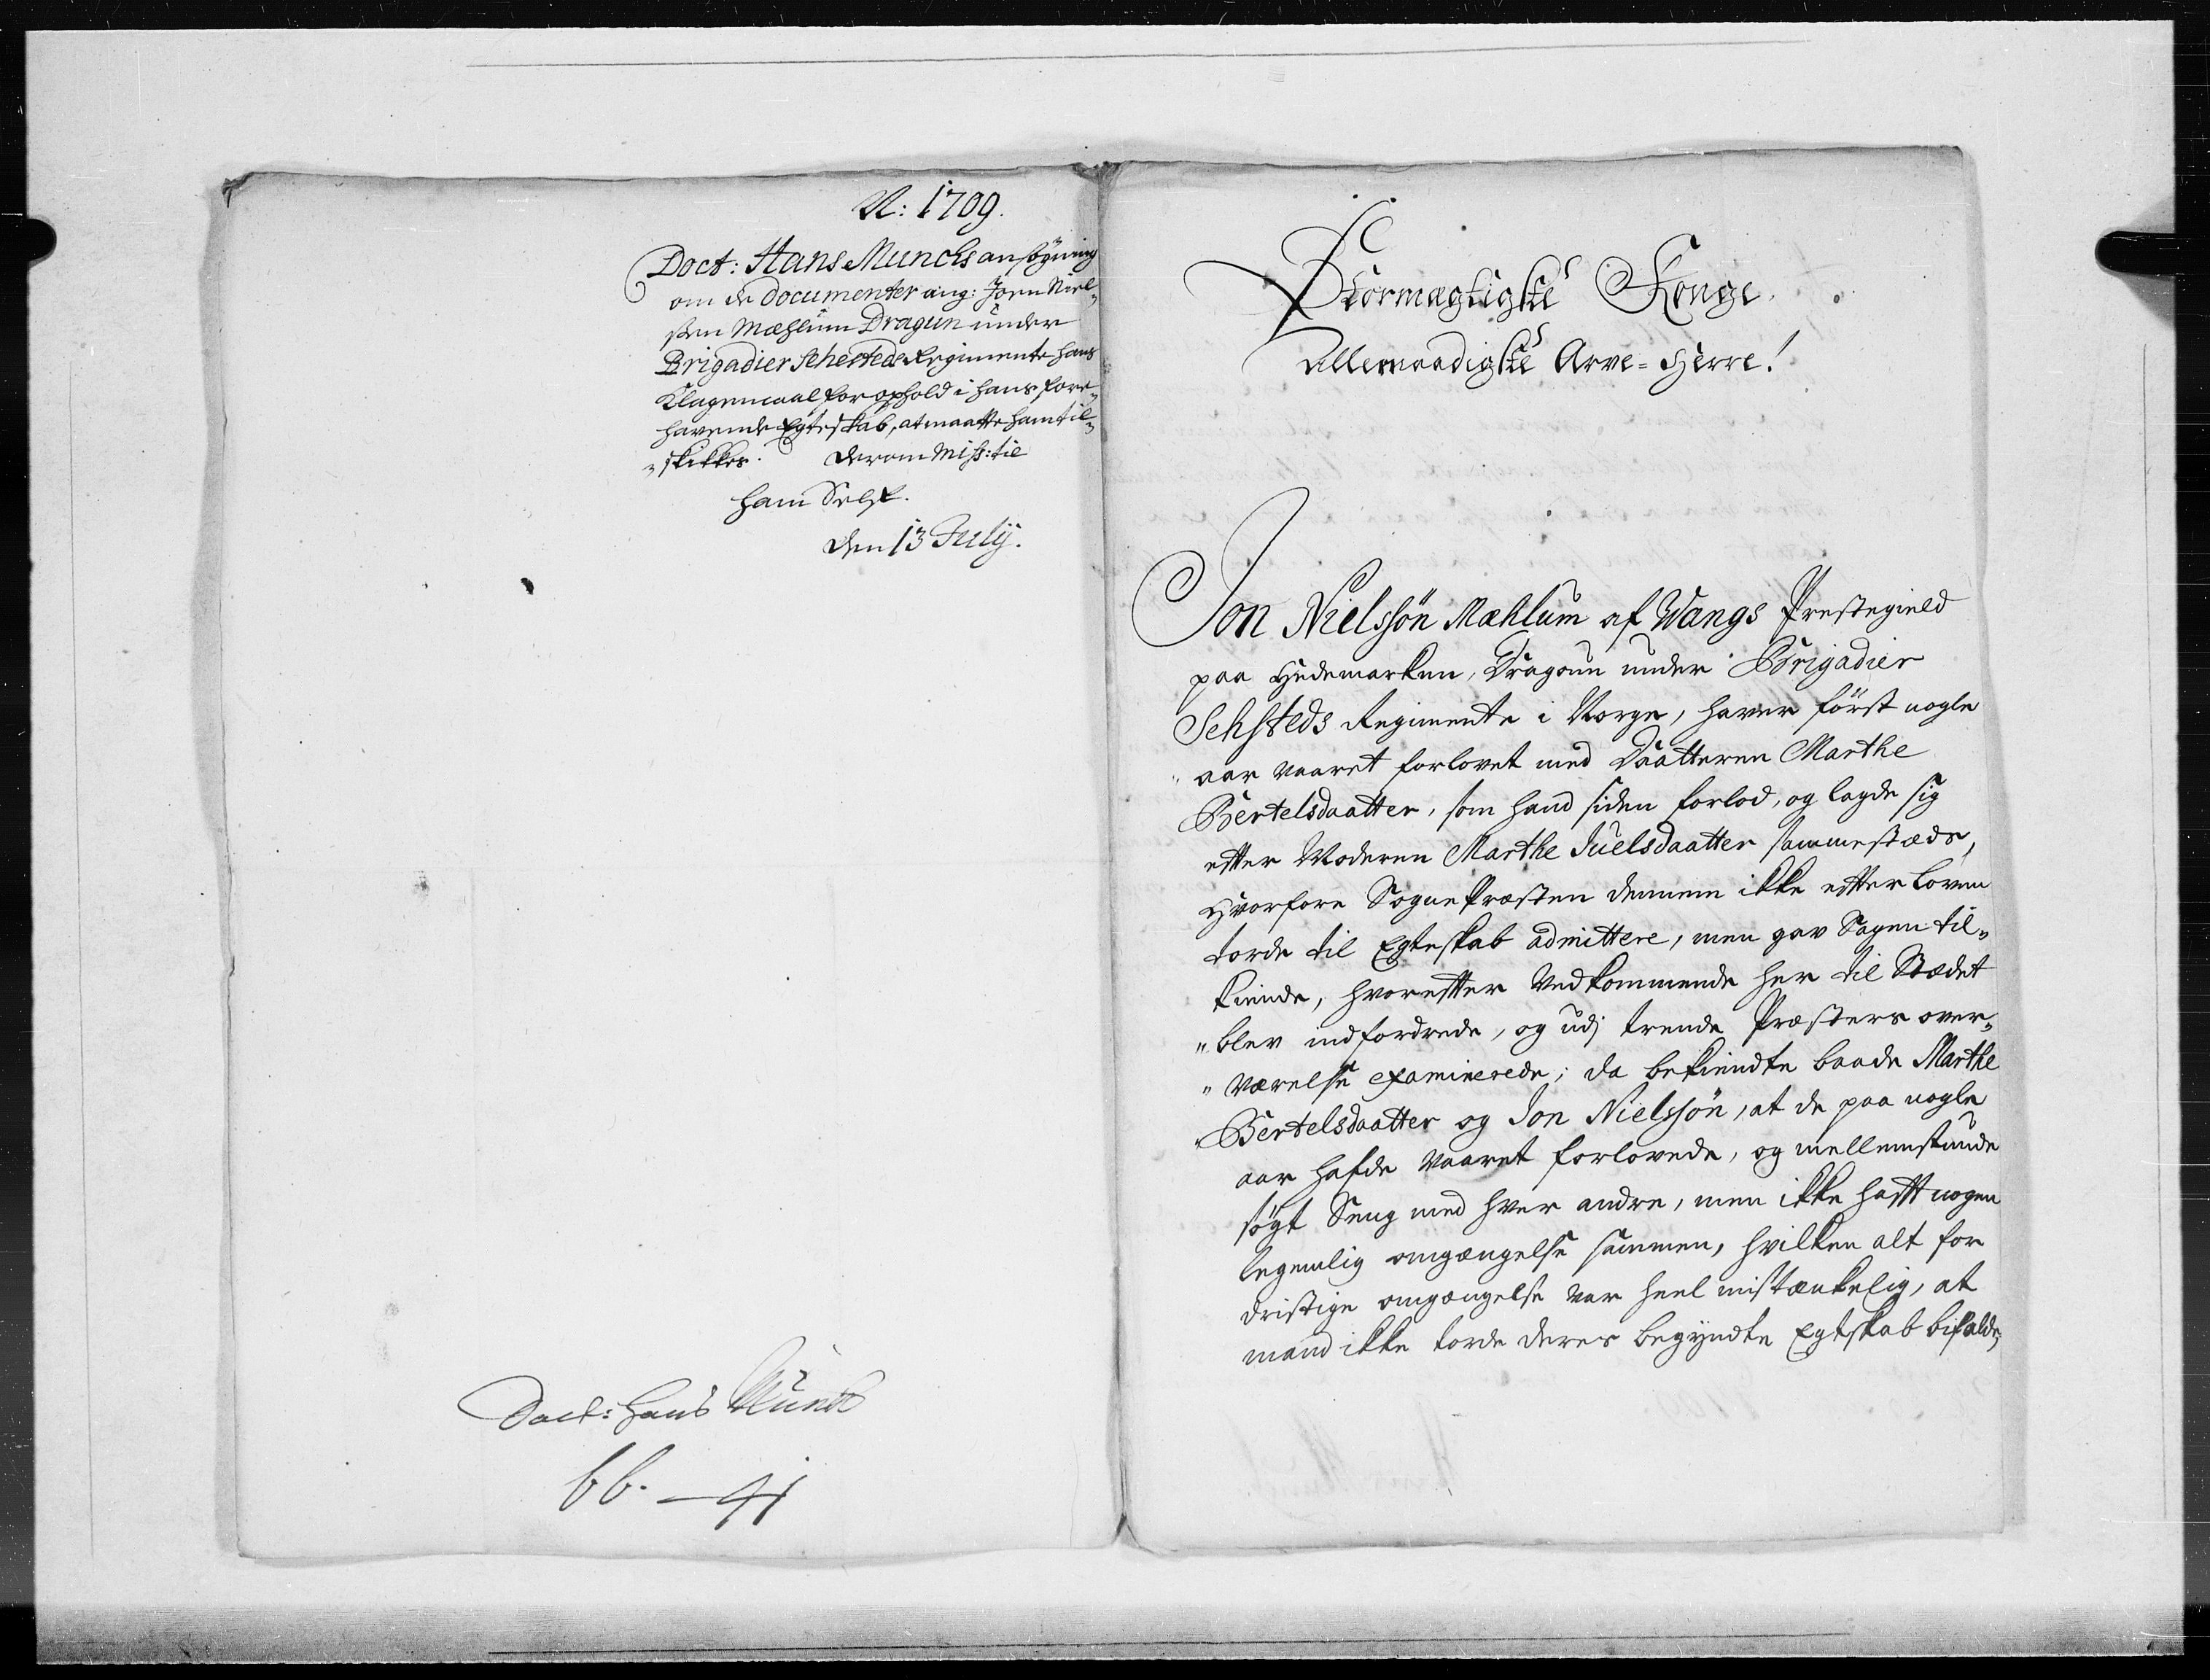 A: 1709.
Doct: Hans Munchs ansøgning
om de Documenter ang: Joen Niel-
sen Mæhlum Dragun under
Brigadier Schesteds Regimente hans
Klagemaal for ophold i hans fore-
havende Egteskab, at maatte ham til-
skikkes. Derom Miss: til
ham Self.
den 13 July.
Doct: Hans Munk
66. — 41
Stormægtigste Konge.
Allernaadigste Arve-Herre!
Jon Nielssön Mæhlum af Wangs Prestegield
paa Hedemarken, Dragoun under Brigadier
Sehsteds Regimente i Norge, haver först nogle
aar vaaret forlovet med Daatteren Marthe
Bertelsdaatter, som hand siden forlod, og lagde sig
etter Moderen Marthe Juelsdaatter sammestæds,
Hvorfore Sognepræsten dennem ikke etter loven
torde til Egteskab admittere, men gav Sagen til-
kiende, hvoretter Vedkommende her til Stædet
blev indfordrede, og udj trende Præsters over-
værelse examinerede; da bekiendte baade Marthe
Bertelsdaatter og Jon Nielssön, at de paa nogle
aar hafde vaaret forlovede, og mellemstunde
sögt Seng med hver andre, men ikke hafft nogen
legemlig omgængelse sammen, hvilken alt for
dristige omgængelse var heel mistænkelig, at
mand ikke torde deres begyndte Egtskab bifalde,